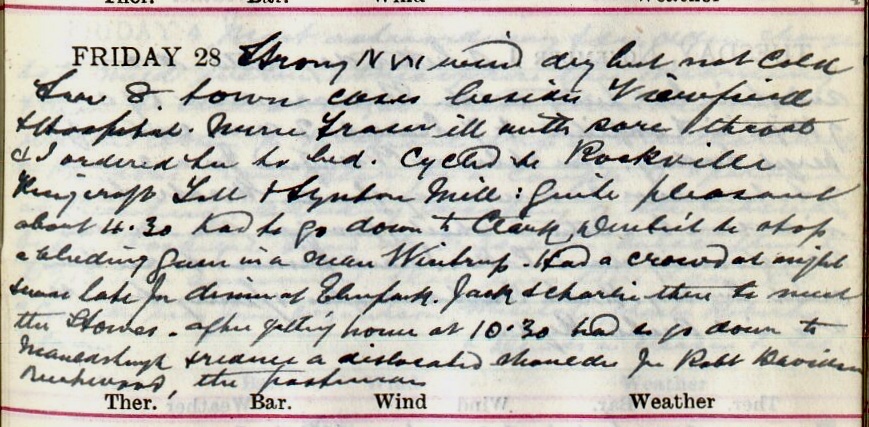 Ther. Bar. Wind Weather
FRIDAY 28 Strong NW wind dry but not cold
Saw 8 town cases besides Viewfield
& Hospital. Nurse Fraser ill with sore throat
& I ordered her to bed. Cycled to Rockville
Kingcroft Toll & Mill: quite pleasant
about 4.30 had to go down to Clark Dentist to stop
a bleeding gum in a man Wintrup. Had a crowd at night
& was late for dinner at Elmpark. Jack & Charlie there to meet
the Stowes. After getting home at 10.30 had to go down to
& reduce a dislocated shoulder for Robt Davidson
the postman
Ther. Bar. Wind Weather